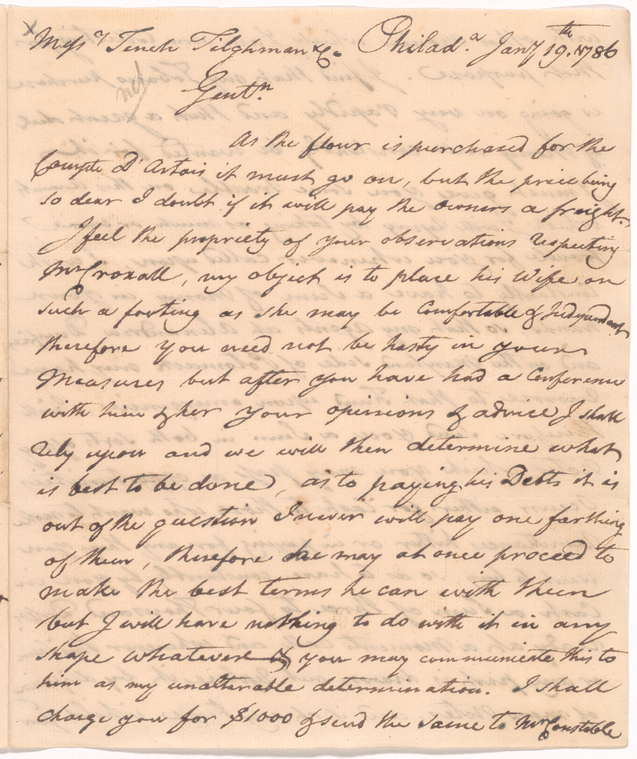 Mess.rs Tench Tilghman & Co. Philad.a Jany 19.th 1786
Gent.n
As the flour is purchased for the
Compte D'Artois it must go on, but the price being
so dear I doubt if it will pay the owners a freight.
I feel the propriety of your observations respecting
Mr Croxall, my object is to place his Wife on
such a footing as she may be Comfortable & Independent
therefore you need not be hasty in your
Measures but after you have had a Conference
with him & her your opinions & advice I shall
rely upon and we will then determine what
is best to be done, as to paying his Debts it is
out of the question I never will pay one farthing
of them, therefore he may at once proceed to
make the best terms he can with them
but I will have nothing to do with it in any
shape whatever & you may communicate this to
him as my unalterable determination. I shall
charge you for $1000 & send the same to Mr Constable